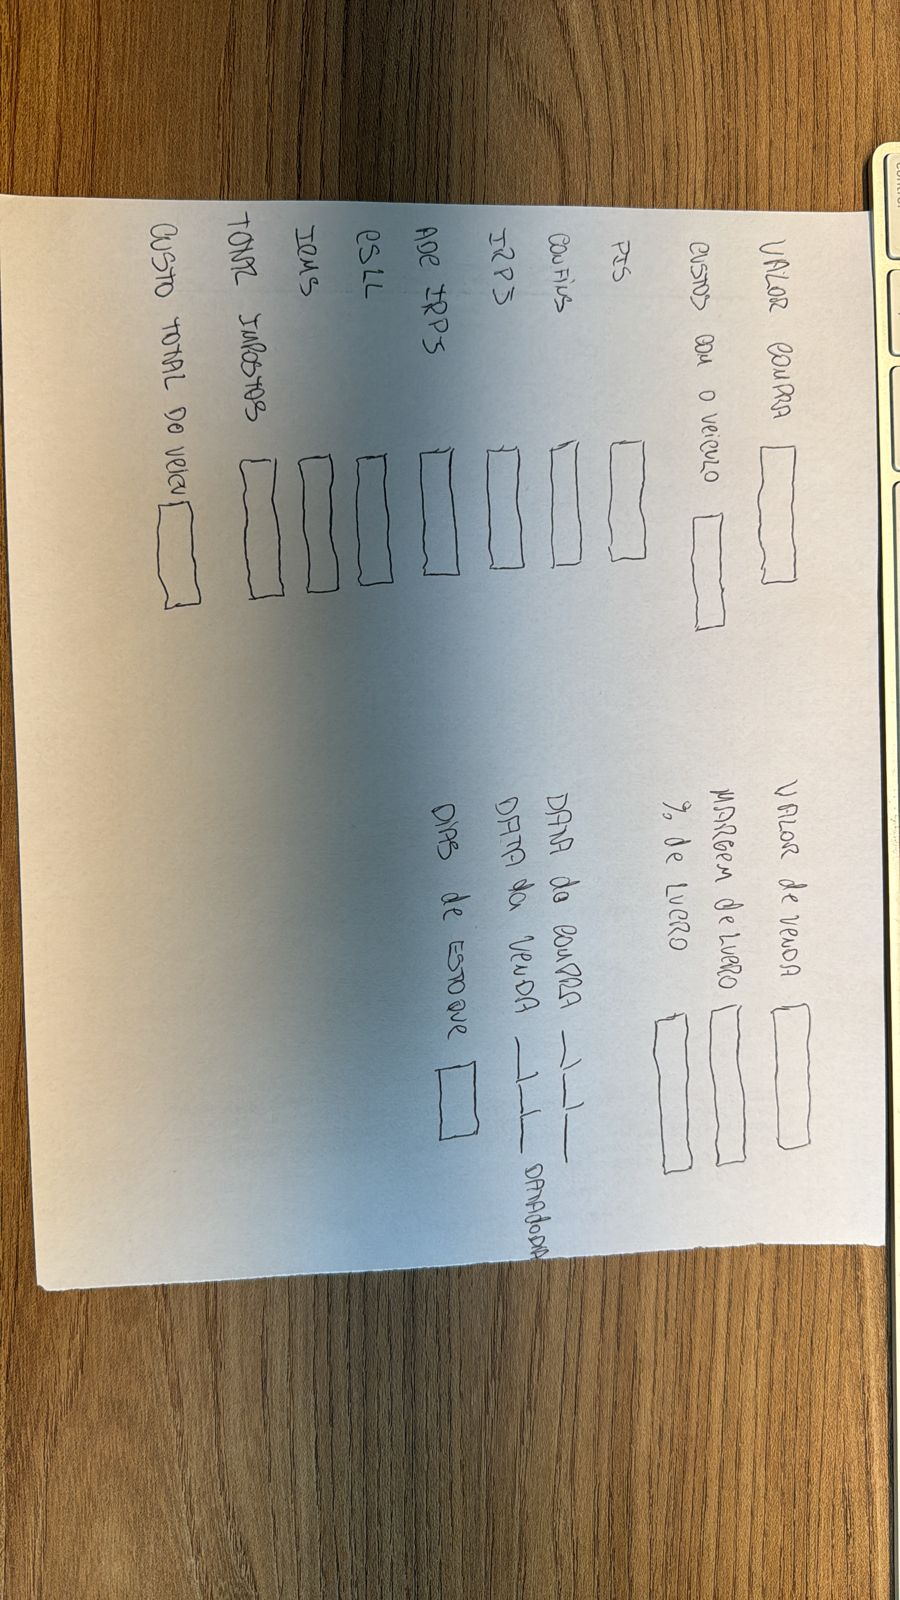 control
VALOR COMPRA
CUSTOS COM O VEICULO
PIS
CONFINS
IRPJ
ADC IRPJ
CSLL
ICMS
TOTAL IMPOSTOS
CUSTO TOTAL DO VEICU
VALOR de VENDA
MARGEM de LUCRO
% de LUCRO
DATA da COMPRA
DATA da VENDA DATA do DIA
DIAS de ESTOQUE